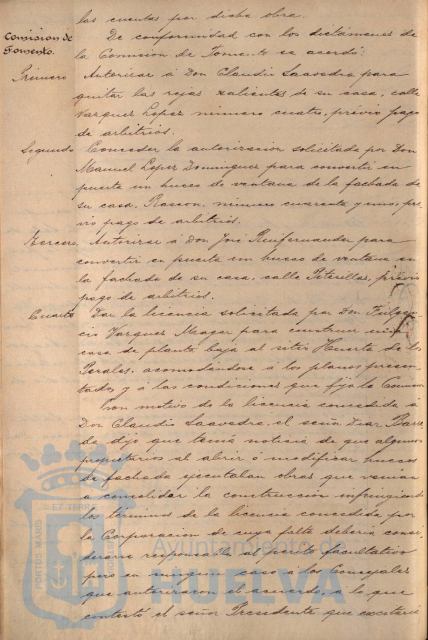 las cuentas por dicha obra.
Comision de Fomento.
De conformidad con los dictámenes de
la Comision de Fomento se acordó:
Primero
Autorizar á Don Claudio Saavedra para
quitar las rejas salientes de su casa, calle
Vazquez Lopez número cuatro, prévio pago
de arbitrios.
Segundo
Conceder la autorizacion solicitada por Don
Manuel Lopez Dominguez para convertir en
puerta un hueco de ventana de la fachada de
su casa, Rascon, número cuarenta y unos, pré-
vio pago de arbitrios.
Tercero
Autorizar á Don José para
convertir en puerta un hueco de ventana en
la fachada de su casa, calle Peterillas, prévio
pago de arbitrios.
Cuarto
Dar la licencia solicitada por Don Fulgen-
cio Vazquez para construir una
casa de planta baja al sitio Huerta de los
Perales, acomodándose á los planos presen-
tados y á las condiciones que fija la Comision
Con motivo de la licencia concedida á
Don Claudio Saavedra, el señor Diaz Barre-
da dijo que tenia noticia de que algunos
propietarios al abrir ó modificar huecos
de fachada ejecutaban obras que venian
a consolidar la construccion infringiendo
los términos de la licencia concedida por
la Corporacion de cuya falta deberia consi-
derarse responsable al perito facultativo
pero en ningun caso a los Concejales
que autorizaron el acuerdo, a lo que
contestó el señor Presidente que
PORTUS MARIS
ET TERRE
Ayuntamiento de
HUELVA